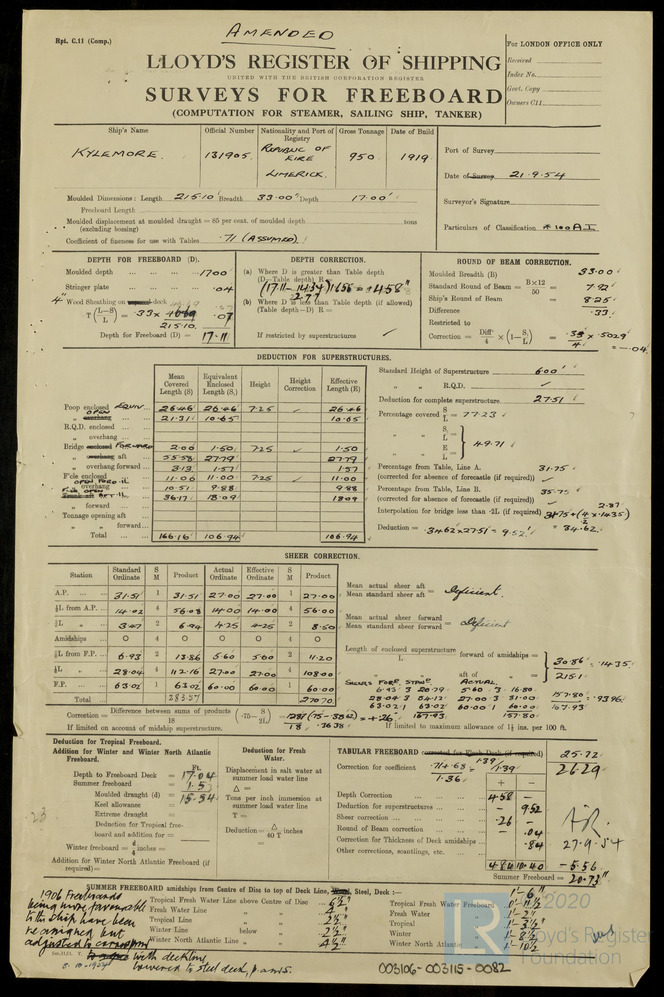 Rpt. C.11 (Comp.)
AMENDED
LLOYD'S REGISTER OF SHIPPING
UNITED WITH THE BRITISH CORPORATION REGISTER
SURVEYS FOR FREEBOARD
(COMPUTATION FOR STEAMER, SAILING SHIP, TANKER)
For LONDON OFFICE ONLY
Received
Index No.
Govt. Copy
Owners C11
Ship's Name Official Number Nationality and Port of Registry Gross Tonnage Date of Build
KYLEMORE. 131905. REPUBLIC OF EIRE LIMERICK. 950 1919
Port of Survey
Date of Survey 21.9.54
Surveyor's Signature
Particulars of Classification 100 A.1
Moulded Dimensions: Length 215.10' Breadth 33.00' Depth 17.00'
Freeboard Length
Moulded displacement at moulded draught = 85 per cent. of moulded depth tons
(excluding bossing)
Coefficient of fineness for use with Tables .71 (ASSUMED).
DEPTH FOR FREEBOARD (D).
Moulded depth 17.00
Stringer plate .04
4" Wood Sheathing on deck
T (L-S/L) = .33 x
215.10 .07
Depth for Freeboard (D) = 17.11
DEPTH CORRECTION.
(a) Where D is greater than Table depth
(D-Table depth) R =
(17.11-14.34) 1.656 = +4.58"
2.77
(b) Where D is less than Table depth (if allowed)
(Table depth-D) R =
If restricted by superstructures
ROUND OF BEAM CORRECTION.
Moulded Breadth (B) 33.00
Standard Round of Beam = B×12/50 = 7.92
Ship's Round of Beam = 8.25
Difference .33
Restricted to
Correction = Diff/4 × (1-S/L) = .33/4 x .5029 = -.04
DEDUCTION FOR SUPERSTRUCTURES.
Mean Covered Length (S) Equivalent Enclosed Length (S₁) Height Height Correction Effective Length (E)
Poop enclosed EQUIV. 26.46 26.46 7.25 26.46
OPEN overhang 21.31 10.65 10.65
R.Q.D. enclosed
" overhang
Bridge enclosed FORWARD 2.00 1.50 7.25 1.50
" overhang aft 55.58 27.79 27.79
" overhang forward 3.13 1.57 1.57
F'cle enclosed 11.06 11.00 7.25 11.00
OPEN FOR'D overhang 10.51 9.88 9.88
F'cle OPEN AFT 36.17 18.09 18.09
" forward
Tonnage opening aft
" " forward
Total 166.16 106.94 106.94
Standard Height of Superstructure 6.00'
" " R.Q.D.
Deduction for complete superstructure 27.51
Percentage covered S/L = 77.23
" " S₁/L =
" " E/L = 49.71
Percentage from Table, Line A. 31.75
(corrected for absence of forecastle (if required))
Percentage from Table, Line B. 35.75
(corrected for absence of forecastle (if required))
2.87
Interpolation for bridge less than ·2L (if required) 31.75+(4 x .1435)
Deduction = .3462 x 27.51 = 9.52 = 34.62
SHEER CORRECTION.
Station Standard Ordinate S M Product Actual Ordinate Effective Ordinate S M Product
A.P. 31.51 1 31.51 27.00 27.00 1 27.00
⅙L from A.P. 14.02 4 56.08 14.00 14.00 4 56.00
⅓L " 3.47 2 6.94 4.25 4.25 2 8.50
Amidships 0 4 0 0 0 4 0
⅓L from F.P. 6.93 2 13.86 5.60 5.60 2 11.20
⅙L " 28.04 4 112.16 27.00 27.00 4 108.00
F.P. 63.02 1 63.02 60.00 60.00 1 60.00
Total 283.57 270.70
Mean actual sheer aft
Mean standard sheer aft = Deficient.
Mean actual sheer forward
Mean standard sheer forward = Deficient
Length of enclosed superstructure
L forward of amidships = 30.86 = .1435
" aft of " = 215.1
SHEERS FORE. STAND. ACTUAL.
6.93 3 20.79 5.60 3 16.80
28.04 3 84.12 27.00 3 81.00
63.02 1 63.02 60.00 1 60.00
167.93 157.80
157.80 = .9396
167.93
Correction = Difference between sums of products/18 (·75-S/2L) = 12.87/18 (.75-.3862) = +.26
.3638
If limited on account of midship superstructure.
If limited to maximum allowance of 1½ ins. per 100 ft.
Deduction for Tropical Freeboard.
Addition for Winter and Winter North Atlantic Freeboard.
Ft.
Depth to Freeboard Deck = 17.04
Summer freeboard = 1.5
Moulded draught (d) = 15.54
Keel allowance =
Extreme draught =
Deduction for Tropical freeboard and addition for =
Winter freeboard = d/4 inches =
Addition for Winter North Atlantic Freeboard (if required)=
Deduction for Fresh Water.
Displacement in salt water at summer load water line
Δ =
Tons per inch immersion at summer load water line
T =
Deduction= Δ/40 T inches
=
TABULAR FREEBOARD corrected for Flush Deck (if required) 25.72
Correction for coefficient .71+.68/1.36 = 1.39/1.36 26.29
+ -
Depth Correction 4.58 -
Deduction for superstructures - 9.52
Sheer correction .26 -
Round of Beam correction - .04
Correction for Thickness of Deck amidships - .84
Other corrections, scantlings, etc.
4.84 10.40 -5.56
Summer Freeboard = 20.73"
27.9.54
23
SUMMER FREEBOARD amidships from Centre of Disc to top of Deck Line, Wood, Steel, Deck:- 1'-6"
Tropical Fresh Water Line above Centre of Disc 6½"
Fresh Water Line " " 4"
Tropical Line " " 2½"
Winter Line below " 2½"
Winter North Atlantic Line " " 4½"
Tropical Fresh Water Freeboard 0'-11½"
Fresh Water " 1'-2"
Tropical " 1'-3½"
Winter " 1'-8½"
Winter North Atlantic " 1'-10½"
1906 Freeboards
being more favourable
to the ship have been
reassigned but
adjusted to correspond
with deckline
lowered to steel deck, p. amis.
8.10.1954
003106-003115-0082
LR
©2020
Lloyd's Register
Foundation